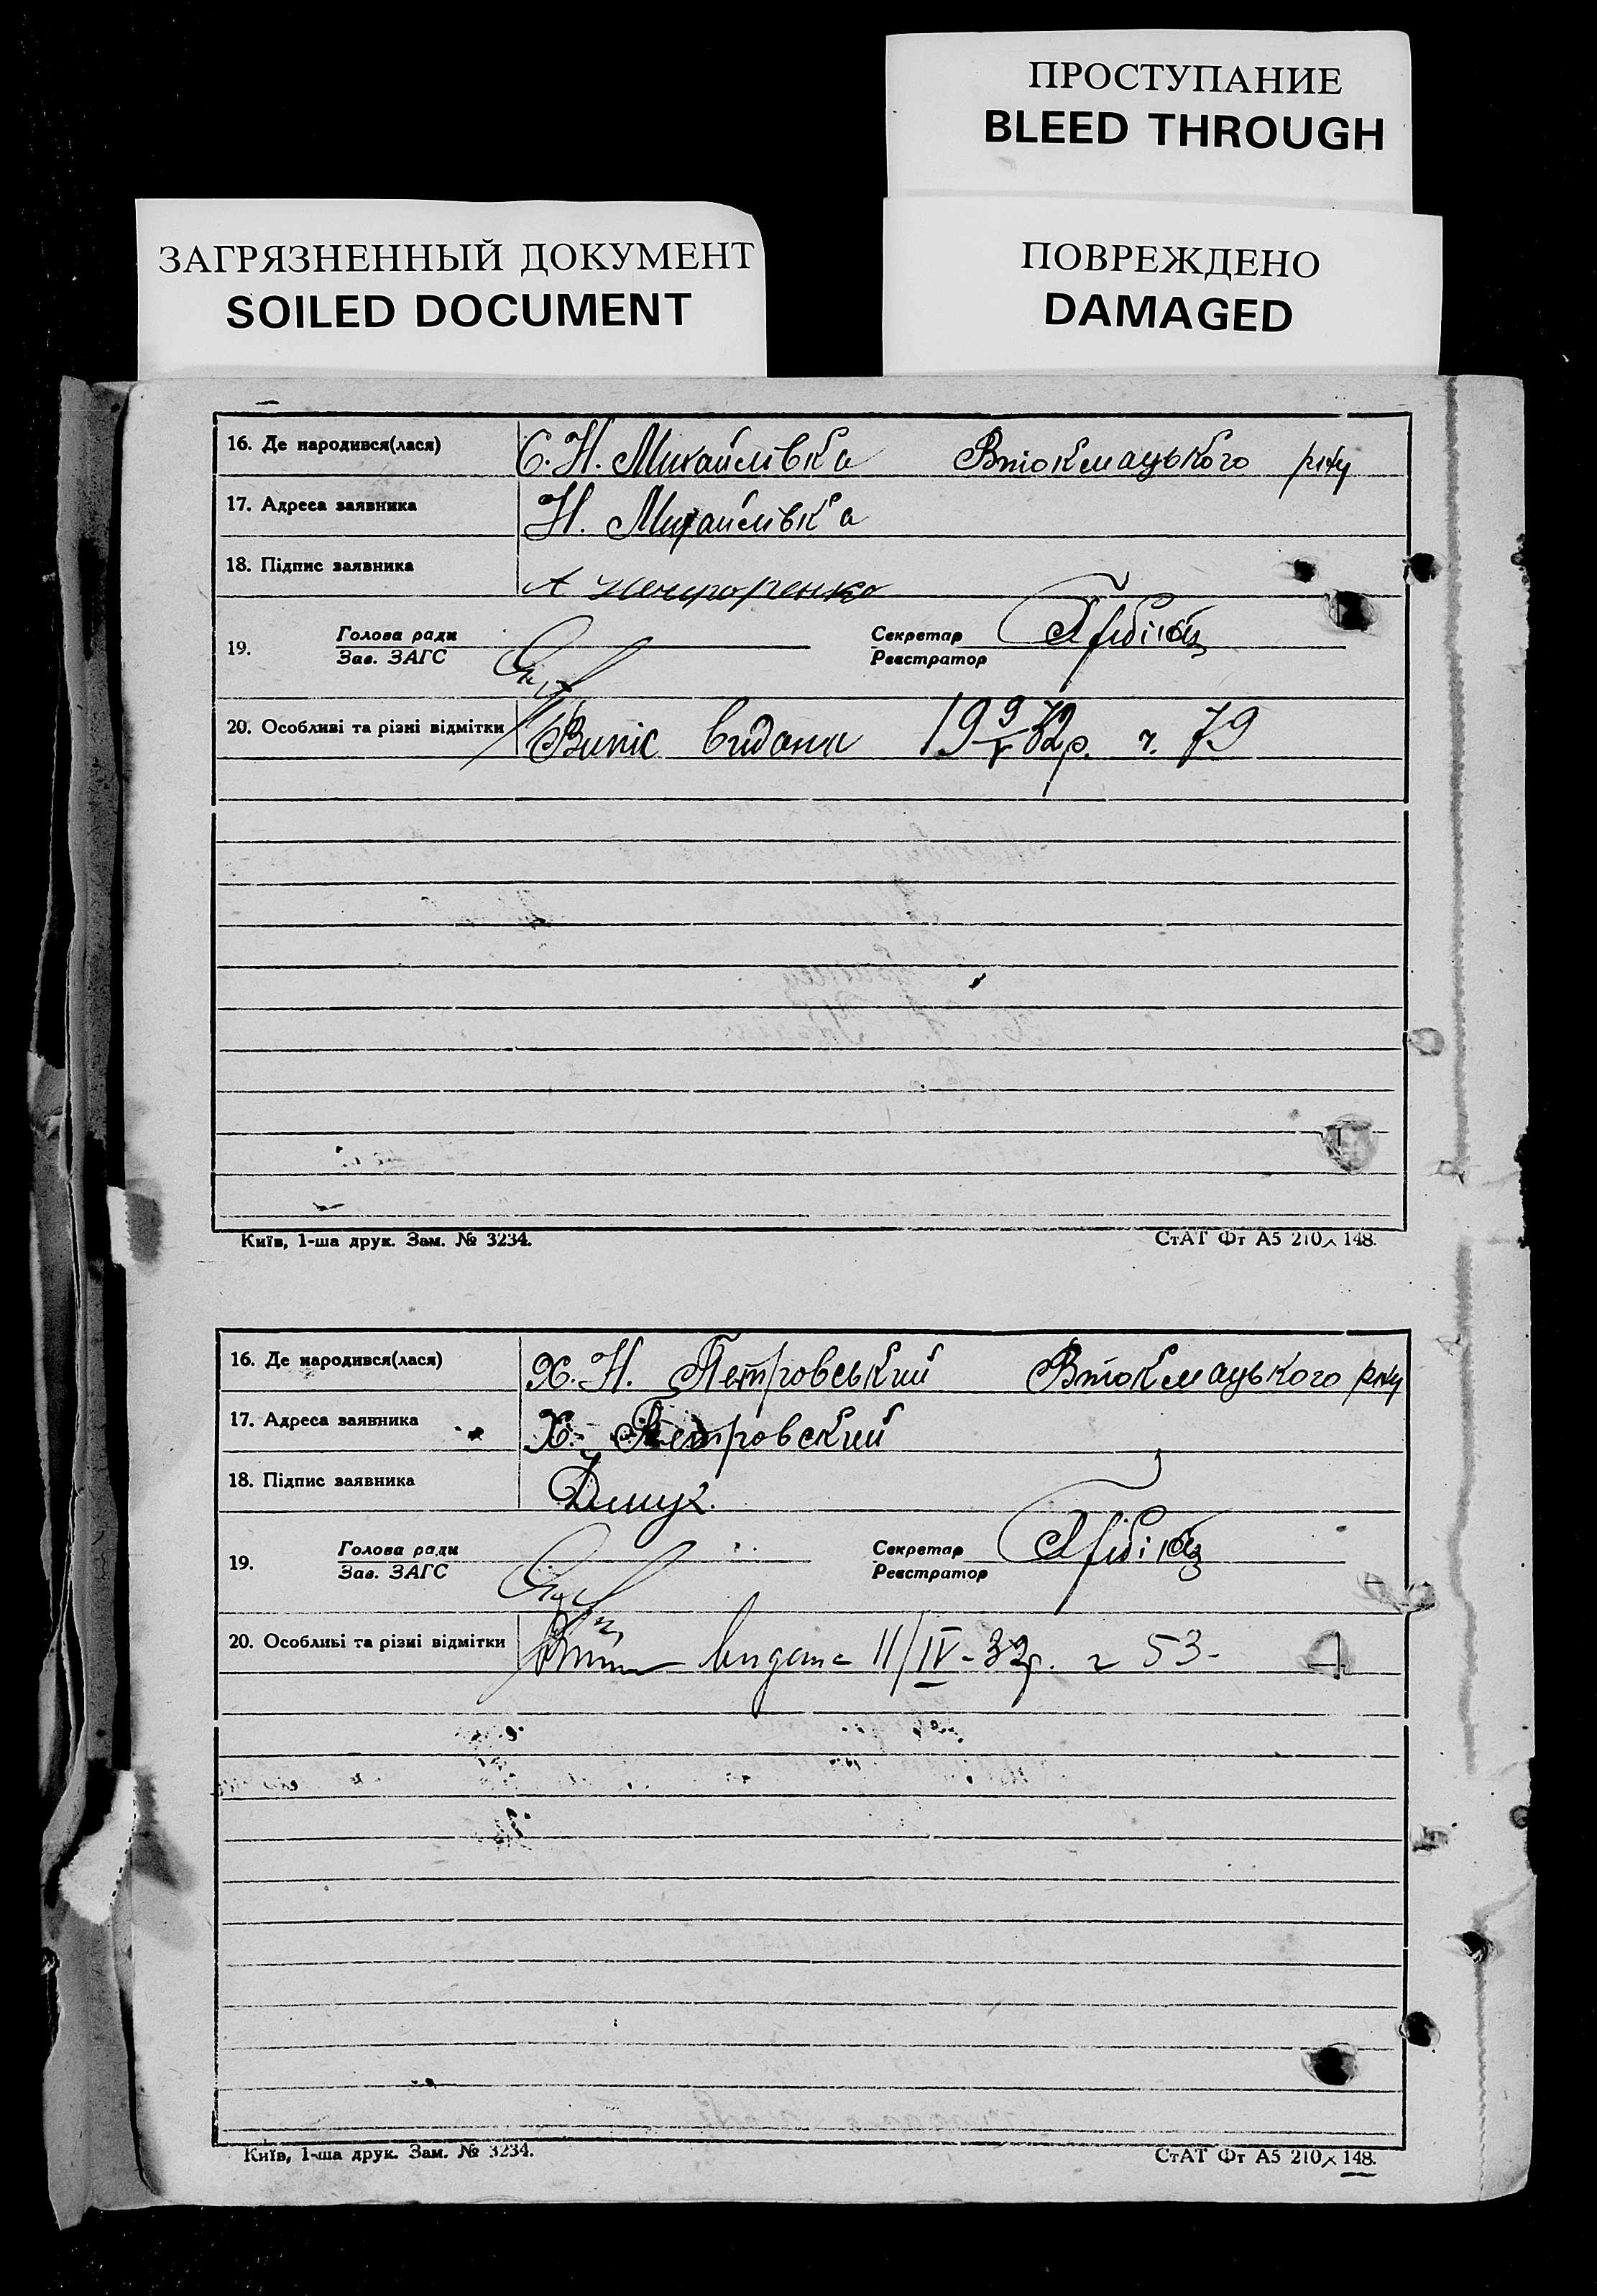 ПРОСТУПАНИЕ
BLEED THROUGH
ЗАГРЯЗНЕННЫЙ ДОКУМЕНТ
SOILED DOCUMENT
ПОВРЕЖДЕНО
DAMAGED
16. Де народився(лася) С. Н. Михайлівка Втокмацького р-ну
17. Адреса заявника Н. Михайлівка
18. Підпис заявника
19. Голова ради Секретар
Зав. ЗАГС Реєстратор
20. Особливі та різні відмітки Випіс видана 19 9/V 32р. ч. 79
Київ, 1-ша друк. Зам. № 3234. СтАТ Фт А5 210 × 148.
16. Де народився(лася) Х. Н. Петровський Втокмацького р-ну
17. Адреса заявника Х. Петровский
18. Підпис заявника
19. Голова ради Секретар
Зав. ЗАГС Реєстратор
20. Особливі та різні відмітки видана 11/IV-32р. ч 53-
Київ, 1-ша друк. Зам. № 3234. СтАТ Фт А5 210 × 148.